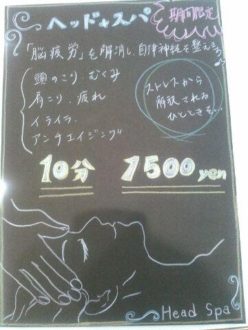 ヘッド+スパ
期間限定
「脳疲労」を解消し、自律神経を整える♪
頭のこり むくみ
肩こり、疲れ
イライラ
アンチエイジング
ストレスから
解放される
ひとときを…
10分 1500yen
Head Spa